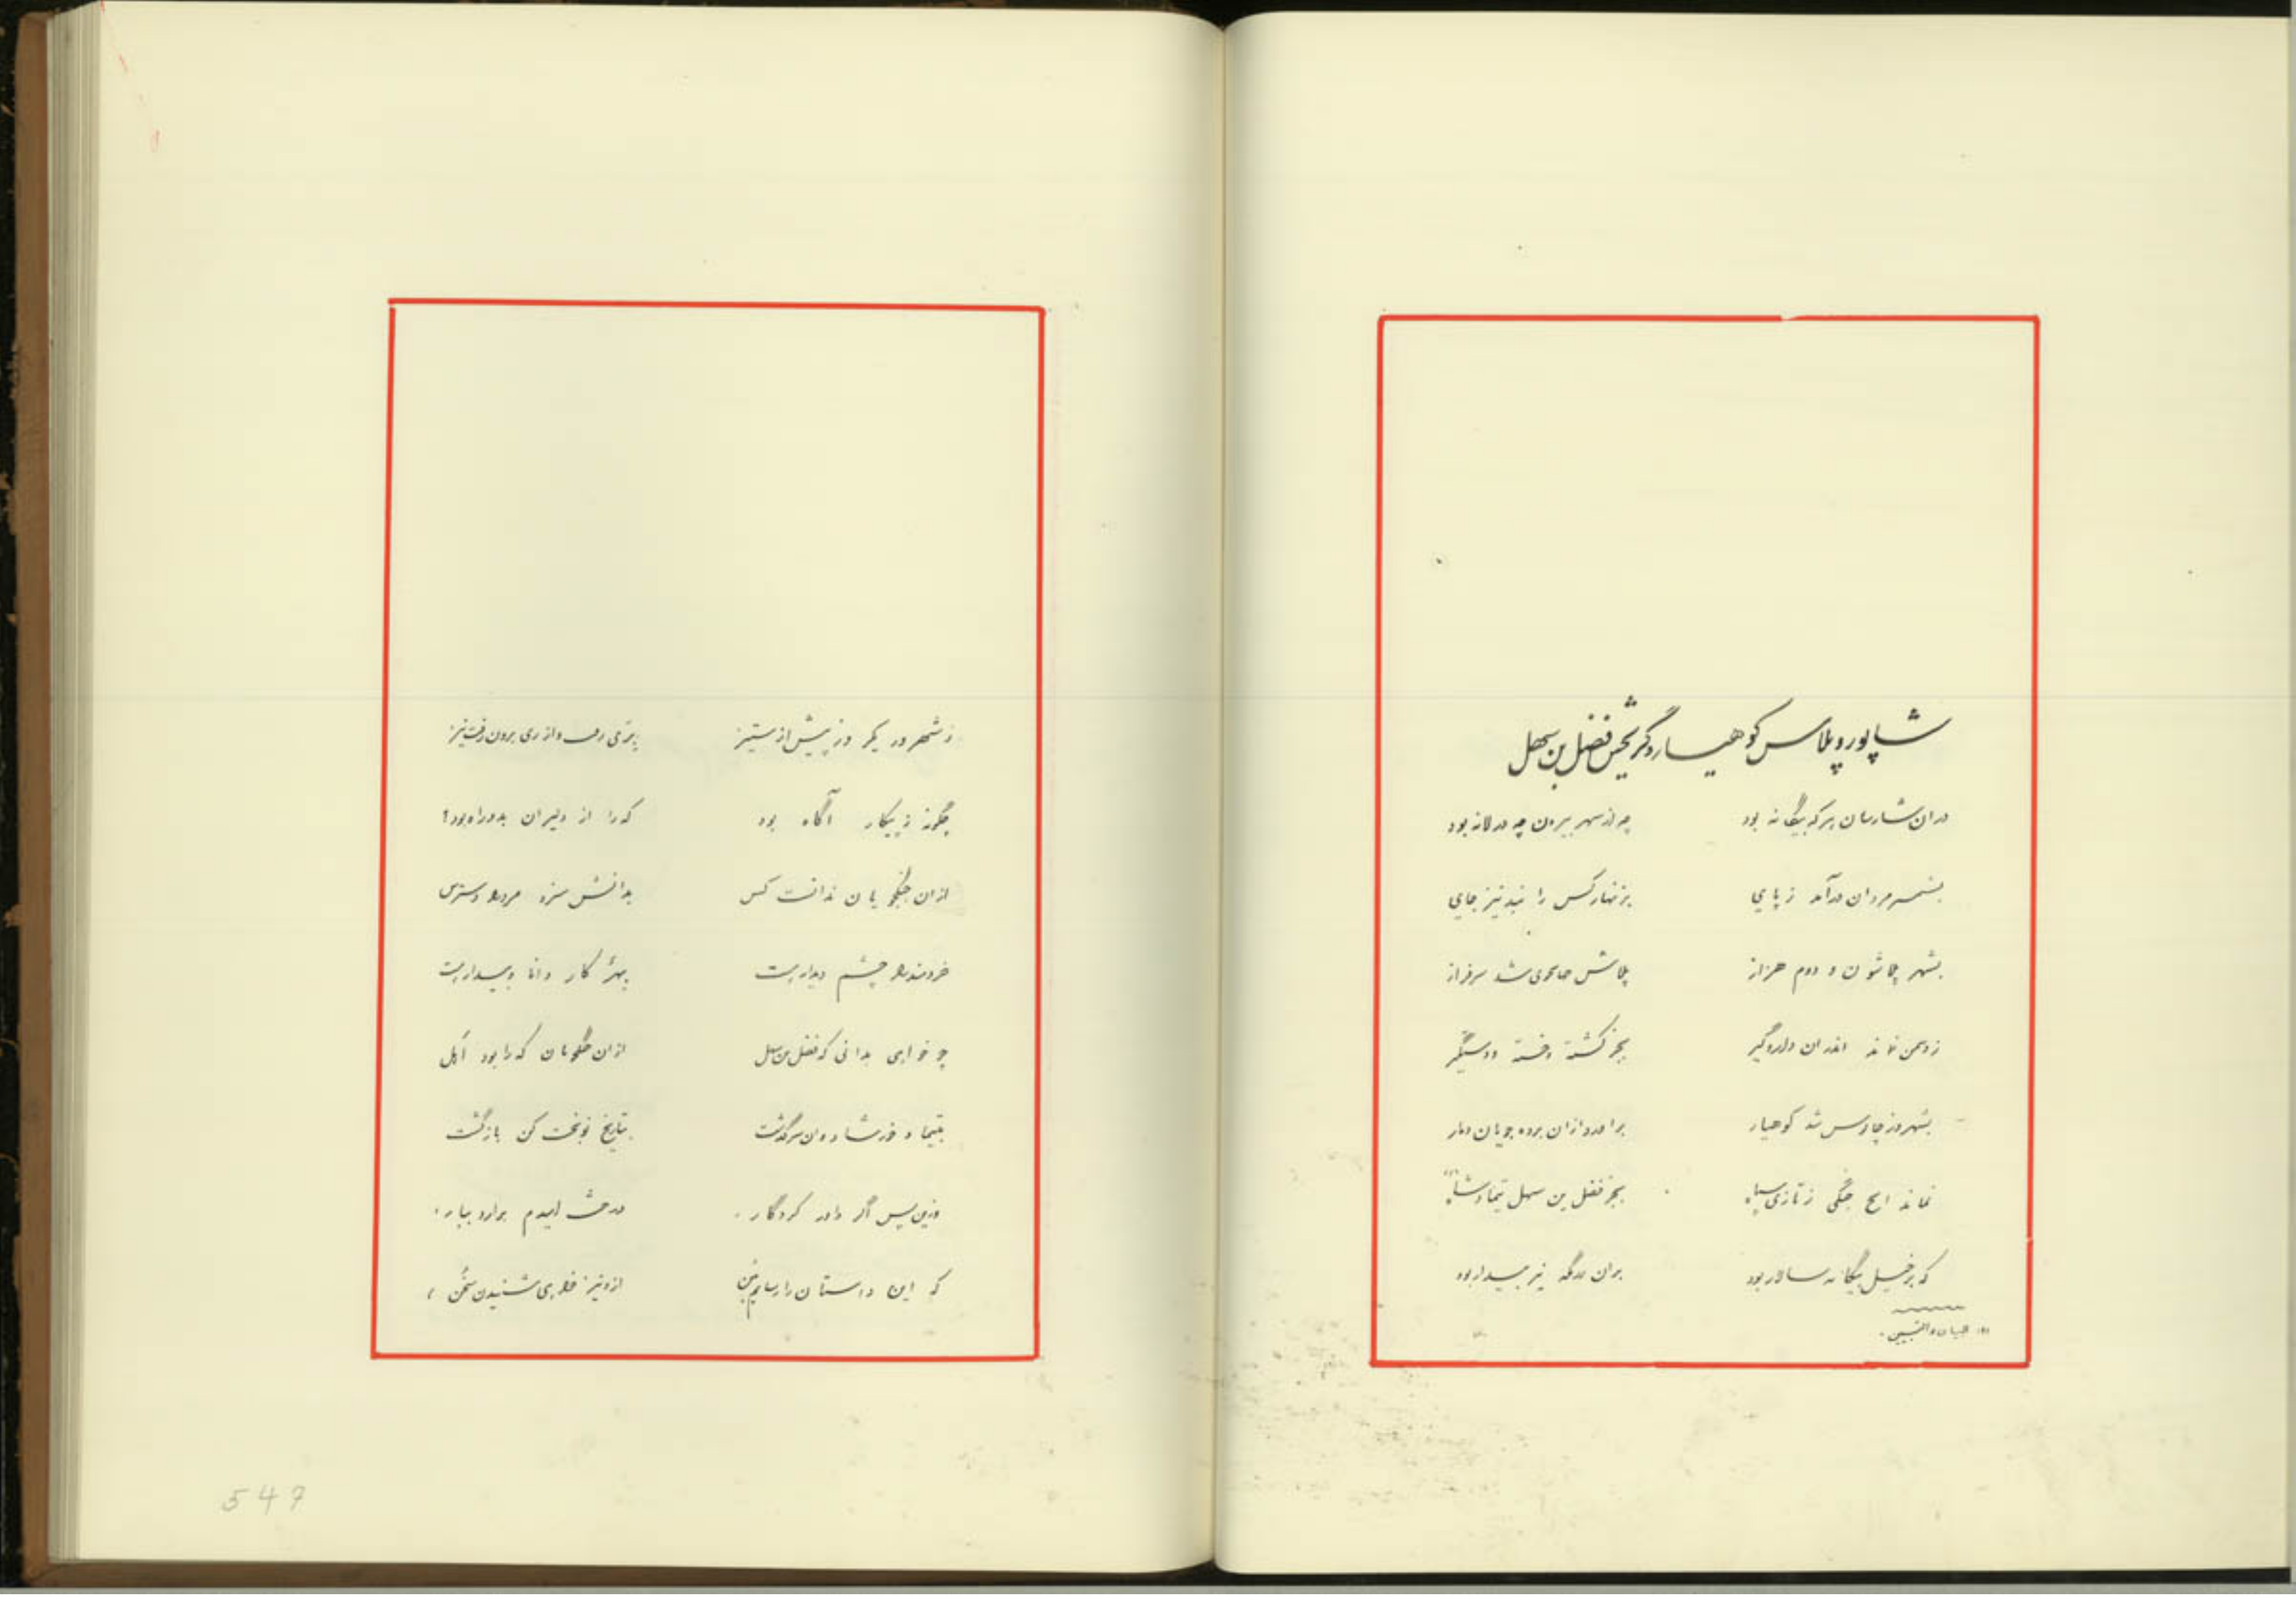 شاپور و پلاس کوهیار و گریختن فضل بن سهل
دران شارسان هرکه بیگانه بود چه از شهر بیرون چه در لانه بود
بشمشیر مردان درآمد ز پای بزنهار کس را نبد نیز جای
بشهر چاشون و دوم هزار پلاش سرفراز
ز دشمن نماند اندران دار و گیر بجز کشته و خسته و دستگیر
بشهر شد کوهیار برآورد ازان برده جویان دمار
نماند ایچ جنگی ز تازی سپاه بجز فضل بن سهل
که بر خیل بیگانه سالار بود بران درگه نیز بیدار بود
ز شهر ور یکر وز پیش از ستیز بری رفت و از ری برون رفت نیز
چگونه ز پیکار آگاه بود که را از دلیران بدو راه بود؟
ازان جنگجویان ندانست کس بدانش سزد مرد را دسترس
خردمند را چشم دیدار هست بهر کار دانا و بیدار هست
چو خواهی بدانی که فضل بن سهل ازان جنگجویان که را بود اهل
سرگذشت بتاریخ نوبخت کن بازگشت
وزین پس اگر داور کردگار درخت امیدم برآرد ببار
که این داستان را رسانم ببن ازو نیز خواهی شنیدن سخن
547